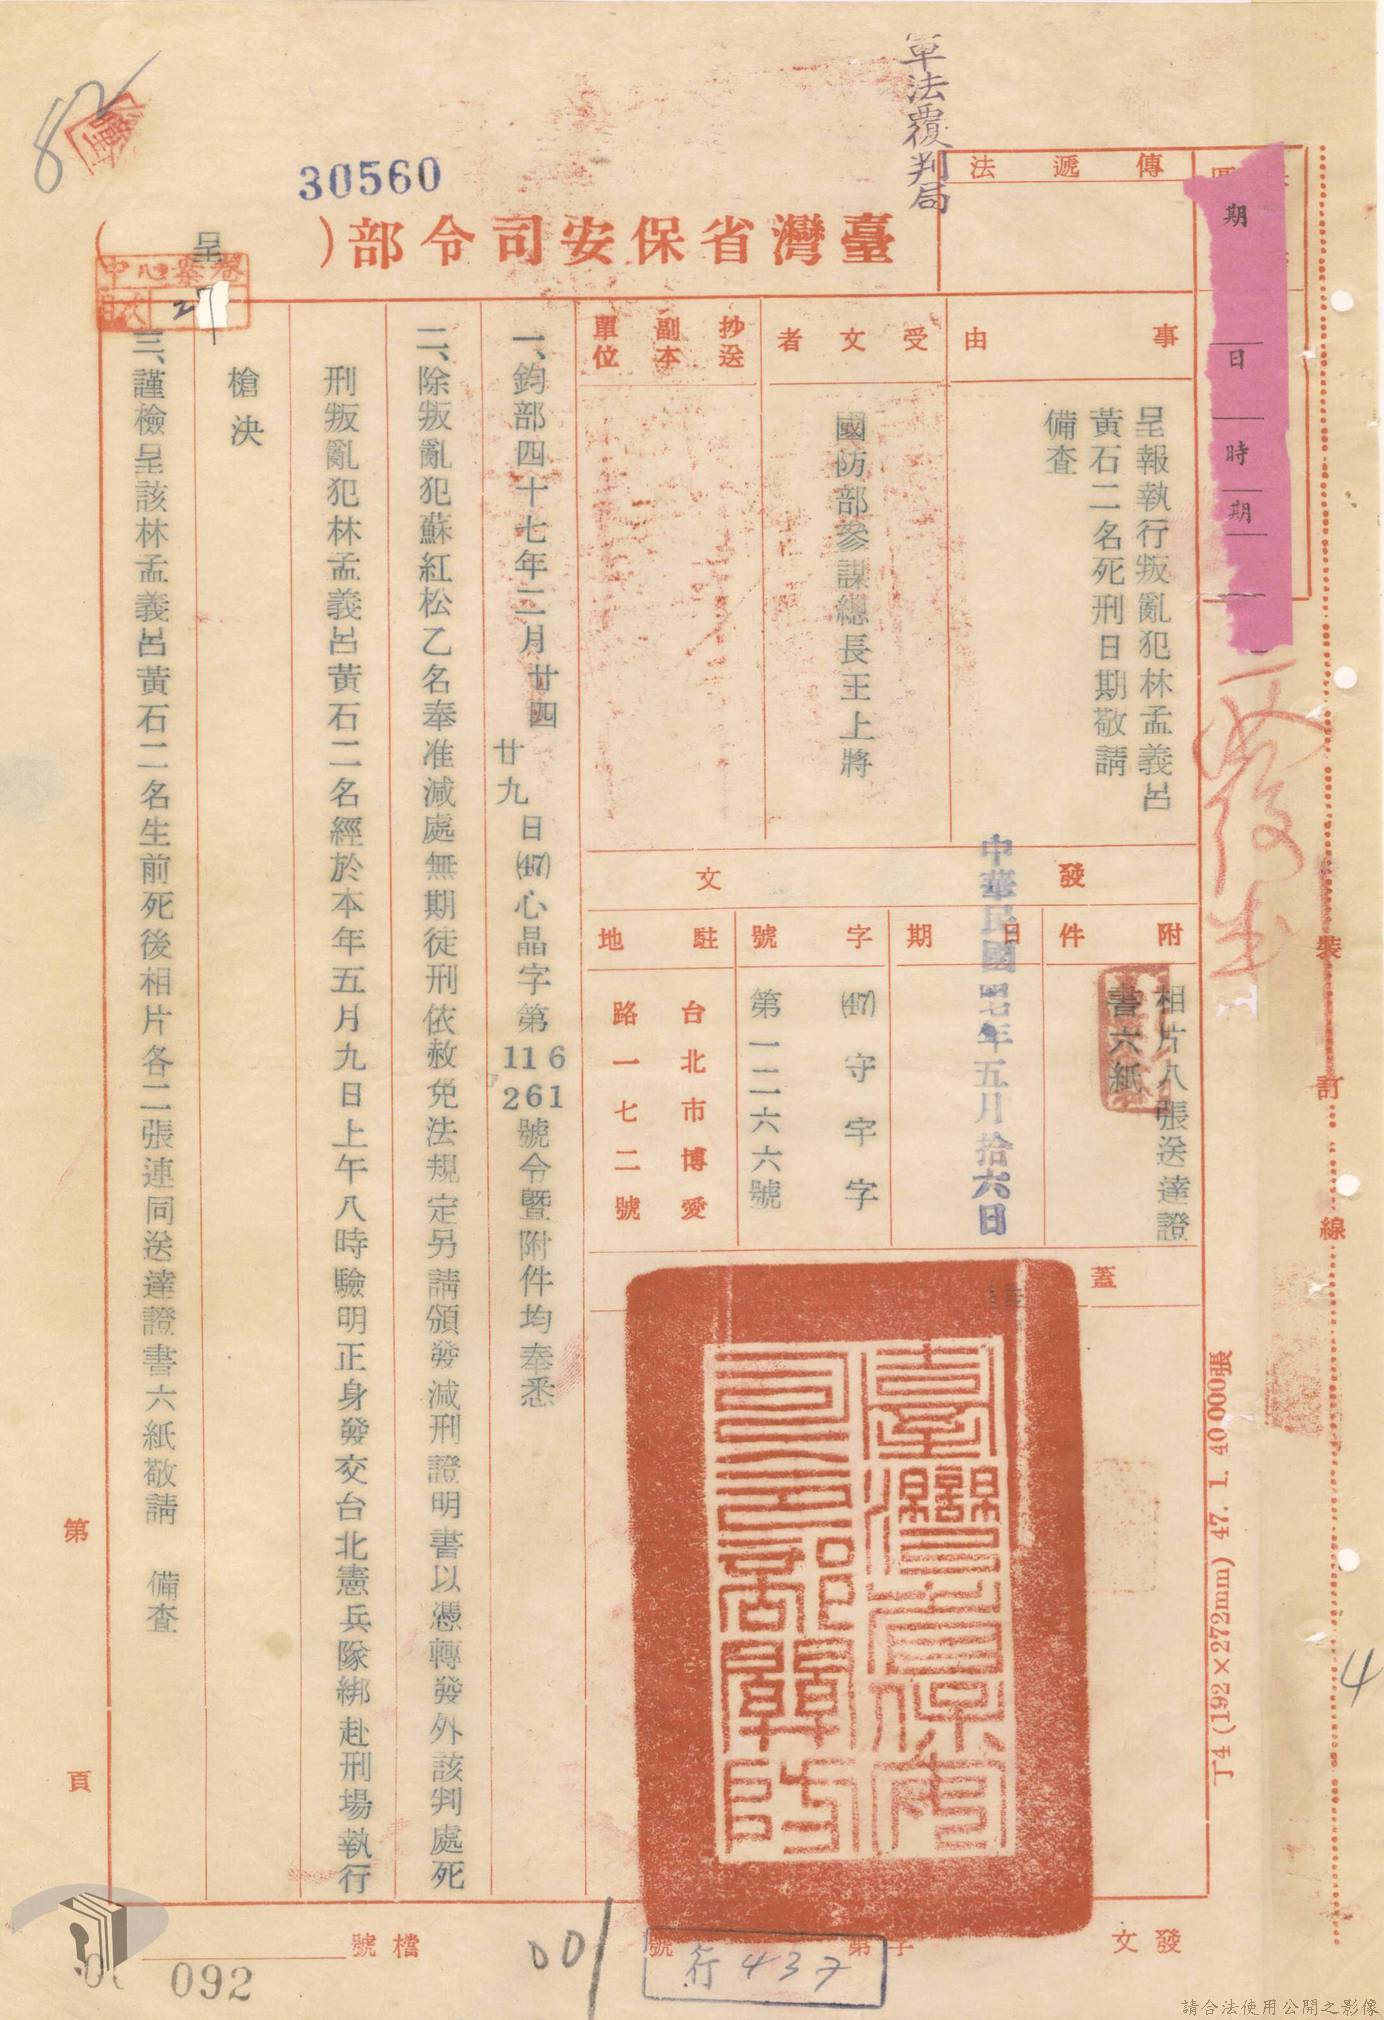 軍法覆判局
30560
臺灣省保安司令部( 呈 )
傳遞法
期
日
時
期
事由
呈報執行叛亂犯林孟義呂
黃石二名死刑日期敬請
備查
受文者
國防部參謀總長王上將
抄送副本單位
發文
附件
相片八張送達證
書六紙
日期
中華民國四七年五月拾六日
字號
(47)守宇字
第一二六六號
駐地
台北市博愛
路一七二號
蓋
臺灣省保安
司令部關防
一、鈞部四十七年二月廿四
廿九
日(47)心晶字第
116
261
號令暨附件均奉悉
二、除叛亂犯蘇紅松乙名奉准減處無期徒刑依赦免法規定另請頒發減刑證明書以憑轉發外該判處死
刑叛亂犯林孟義呂黃石二名經於本年五月九日上午八時驗明正身發交台北憲兵隊綁赴刑場執行
槍決
三、謹檢呈該林孟義呂黃石二名生前死後相片各二張連同送達證書六紙敬請 備查
中心案卷
目次
27
裝
訂
線
丁4(192×272mm) 47. 1. 40000張
4
第
頁
發文
字第
號
符437
001
檔號
092
請合法使用公開之影像